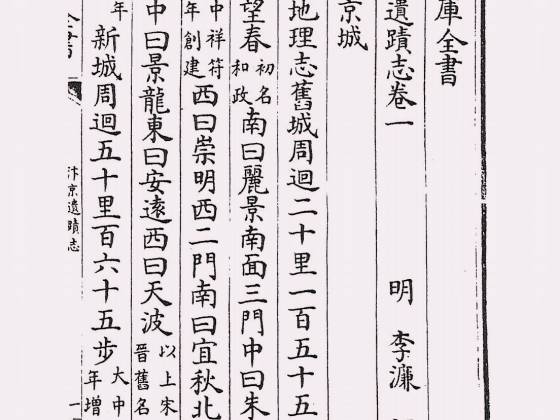 庫全書
遺蹟志卷一 明 李濂
京城
地理志舊城周迴二十里一百五十五
望春初名和政南曰麗景南面三門中曰朱
中祥符年創建西曰崇明西二門南曰宜秋北
中曰景龍東曰安遠西曰天波以上宋晉舊名
年新城周迴五十里百六十五步大中年增
全書
汴京遺蹟志
一